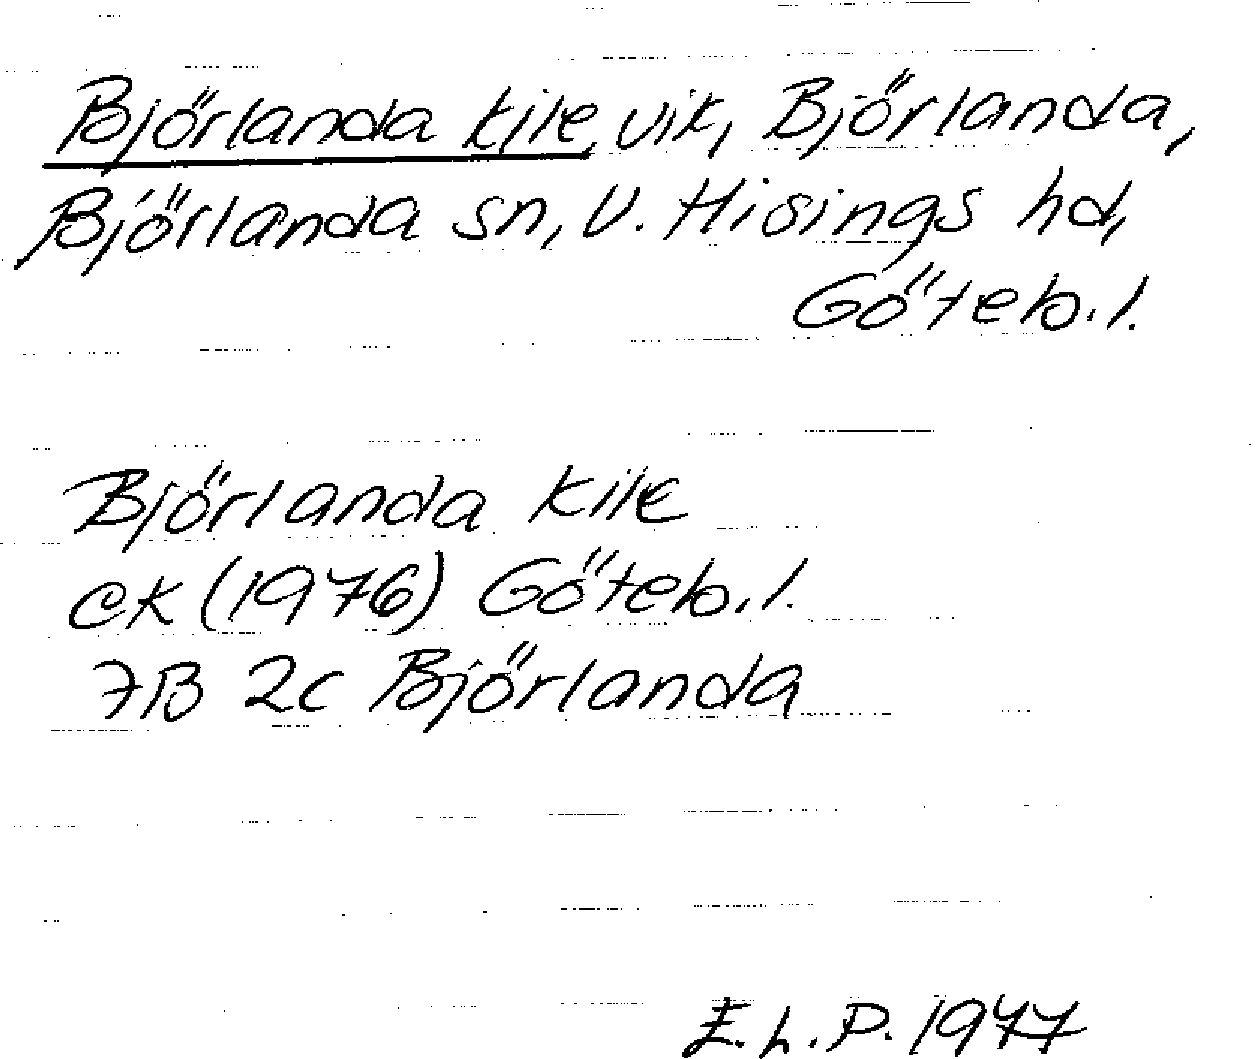 Björlanda kile, vik, Björlanda,
Björlanda sn, V. Hisings hd,
Göteb.l.
Björlanda kile
EK (1976) Göteb.l.
7B 2c Björlanda
E.L.P. 1977